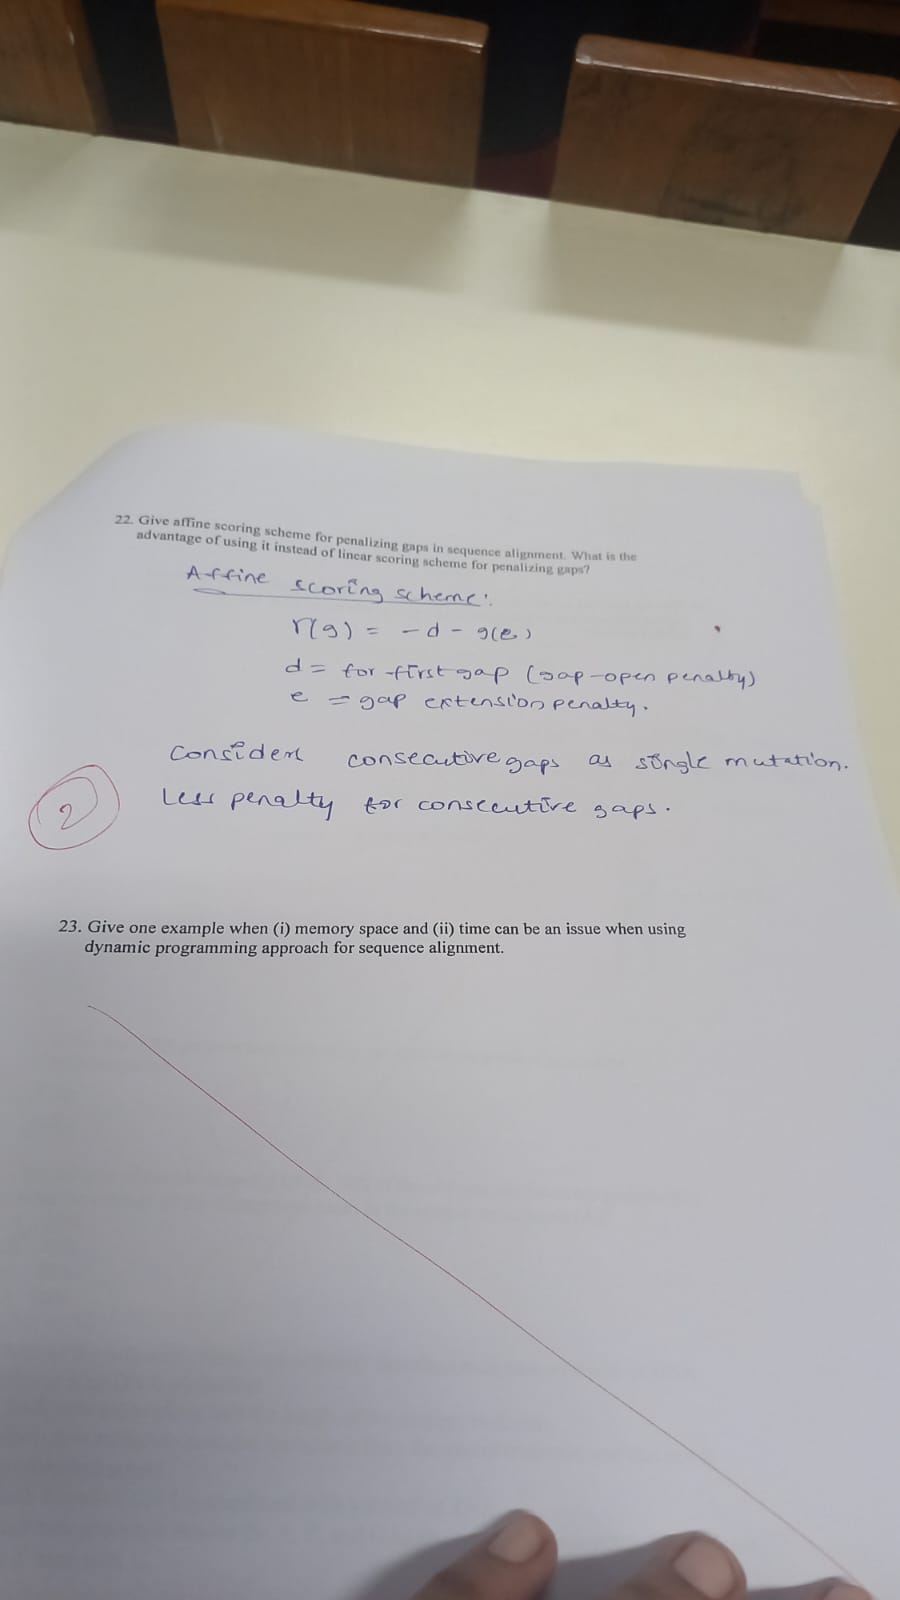 22. Give affine scoring scheme for penalizing gaps in sequence alignment. What is the
advantage of using it instead of linear scoring scheme for penalizing gaps?
Affine scoring scheme:
r(g) = -d - g(e)
d = for first gap (gap-open penalty)
e = gap extension penalty.
Consider consecutive gaps as single mutation.
2
Less penalty for consecutive gaps.
23. Give one example when (i) memory space and (ii) time can be an issue when using
dynamic programming approach for sequence alignment.